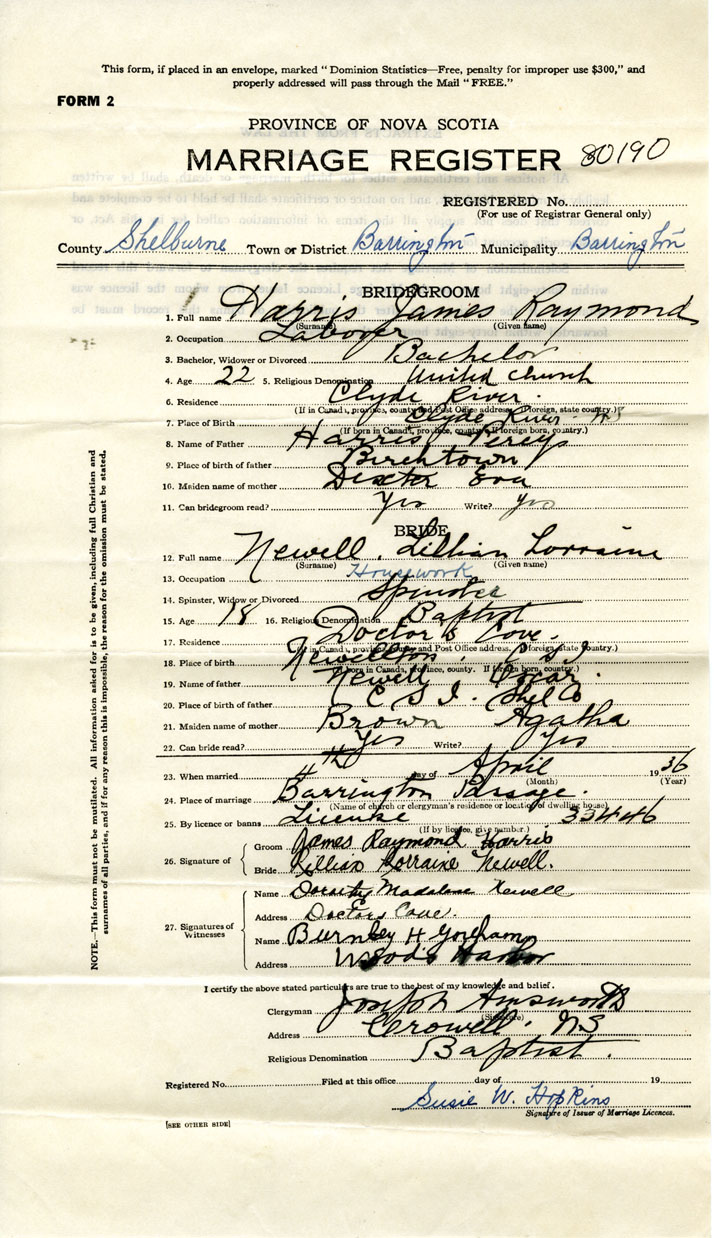 This form, if placed in an envelope, marked "Dominion Statistics—Free, penalty for improper use $300," and
properly addressed will pass through the Mail "FREE."
FORM 2
PROVINCE OF NOVA SCOTIA
MARRIAGE REGISTER 80190
REGISTERED No.
(For use of Registrar General only)
County Shelburne Town or District Barrington Municipality Barrington
BRIDEGROOM
1. Full name Harris James Raymond
(Surname) (Given name)
2. Occupation Laborer
3. Bachelor, Widower or Divorced Bachelor
4. Age 22 5. Religious Denomination United Church
6. Residence Clyde River.
(If in Canada, province, county and Post Office address. If foreign, state country.)
7. Place of Birth Clyde River NS
(If born in Canada, province, county. If foreign born, country.)
8. Name of Father Harris Percy
9. Place of birth of father Birchtown
10. Maiden name of mother Dexter Eva
11. Can bridegroom read? Yes Write? Yes
BRIDE
12. Full name Newell. Lillian Lorraine
(Surname) (Given name)
13. Occupation Housework
14. Spinster, Widow or Divorced Spinster
15. Age 18 16. Religious Denomination Baptist
17. Residence Doctor's Cove.
(If in Canada, province, county and Post Office address. If foreign, state country.)
18. Place of birth Newellton C S I.
(If born in Canada, province, county. If foreign born, country.)
19. Name of father Newell Oscar.
20. Place of birth of father C S I. Shel Co
21. Maiden name of mother Brown Agatha
22. Can bride read? Yes Write? Yes
23. When married 4th day of April 1936
(Month) (Year)
24. Place of marriage Barrington Passage.
(Name of church or clergyman's residence or location of dwelling house)
25. By licence or banns License 33446
(If by licence, give number.)
26. Signature of
Groom James Raymond Harris
Bride Lillian Lorraine Newell.
27. Signatures of Witnesses
Name Dorothy Madalene Newell
Address Doctors Cove.
Name Burnley H Goreham
Address Wood's Harbor
I certify the above stated particulars are true to the best of my knowledge and belief.
Clergyman Joseph Ainsworth
(Signature)
Address Crowell. NS
Religious Denomination Baptist.
Registered No. Filed at this office day of 19
Susie W. Hopkins
Signature of Issuer of Marriage Licences.
[SEE OTHER SIDE]
NOTE.—This form must not be mutilated. All information asked for is to be given, including full Christian and
surnames of all parties, and if for any reason this is impossible, the reason for the omission must be stated.